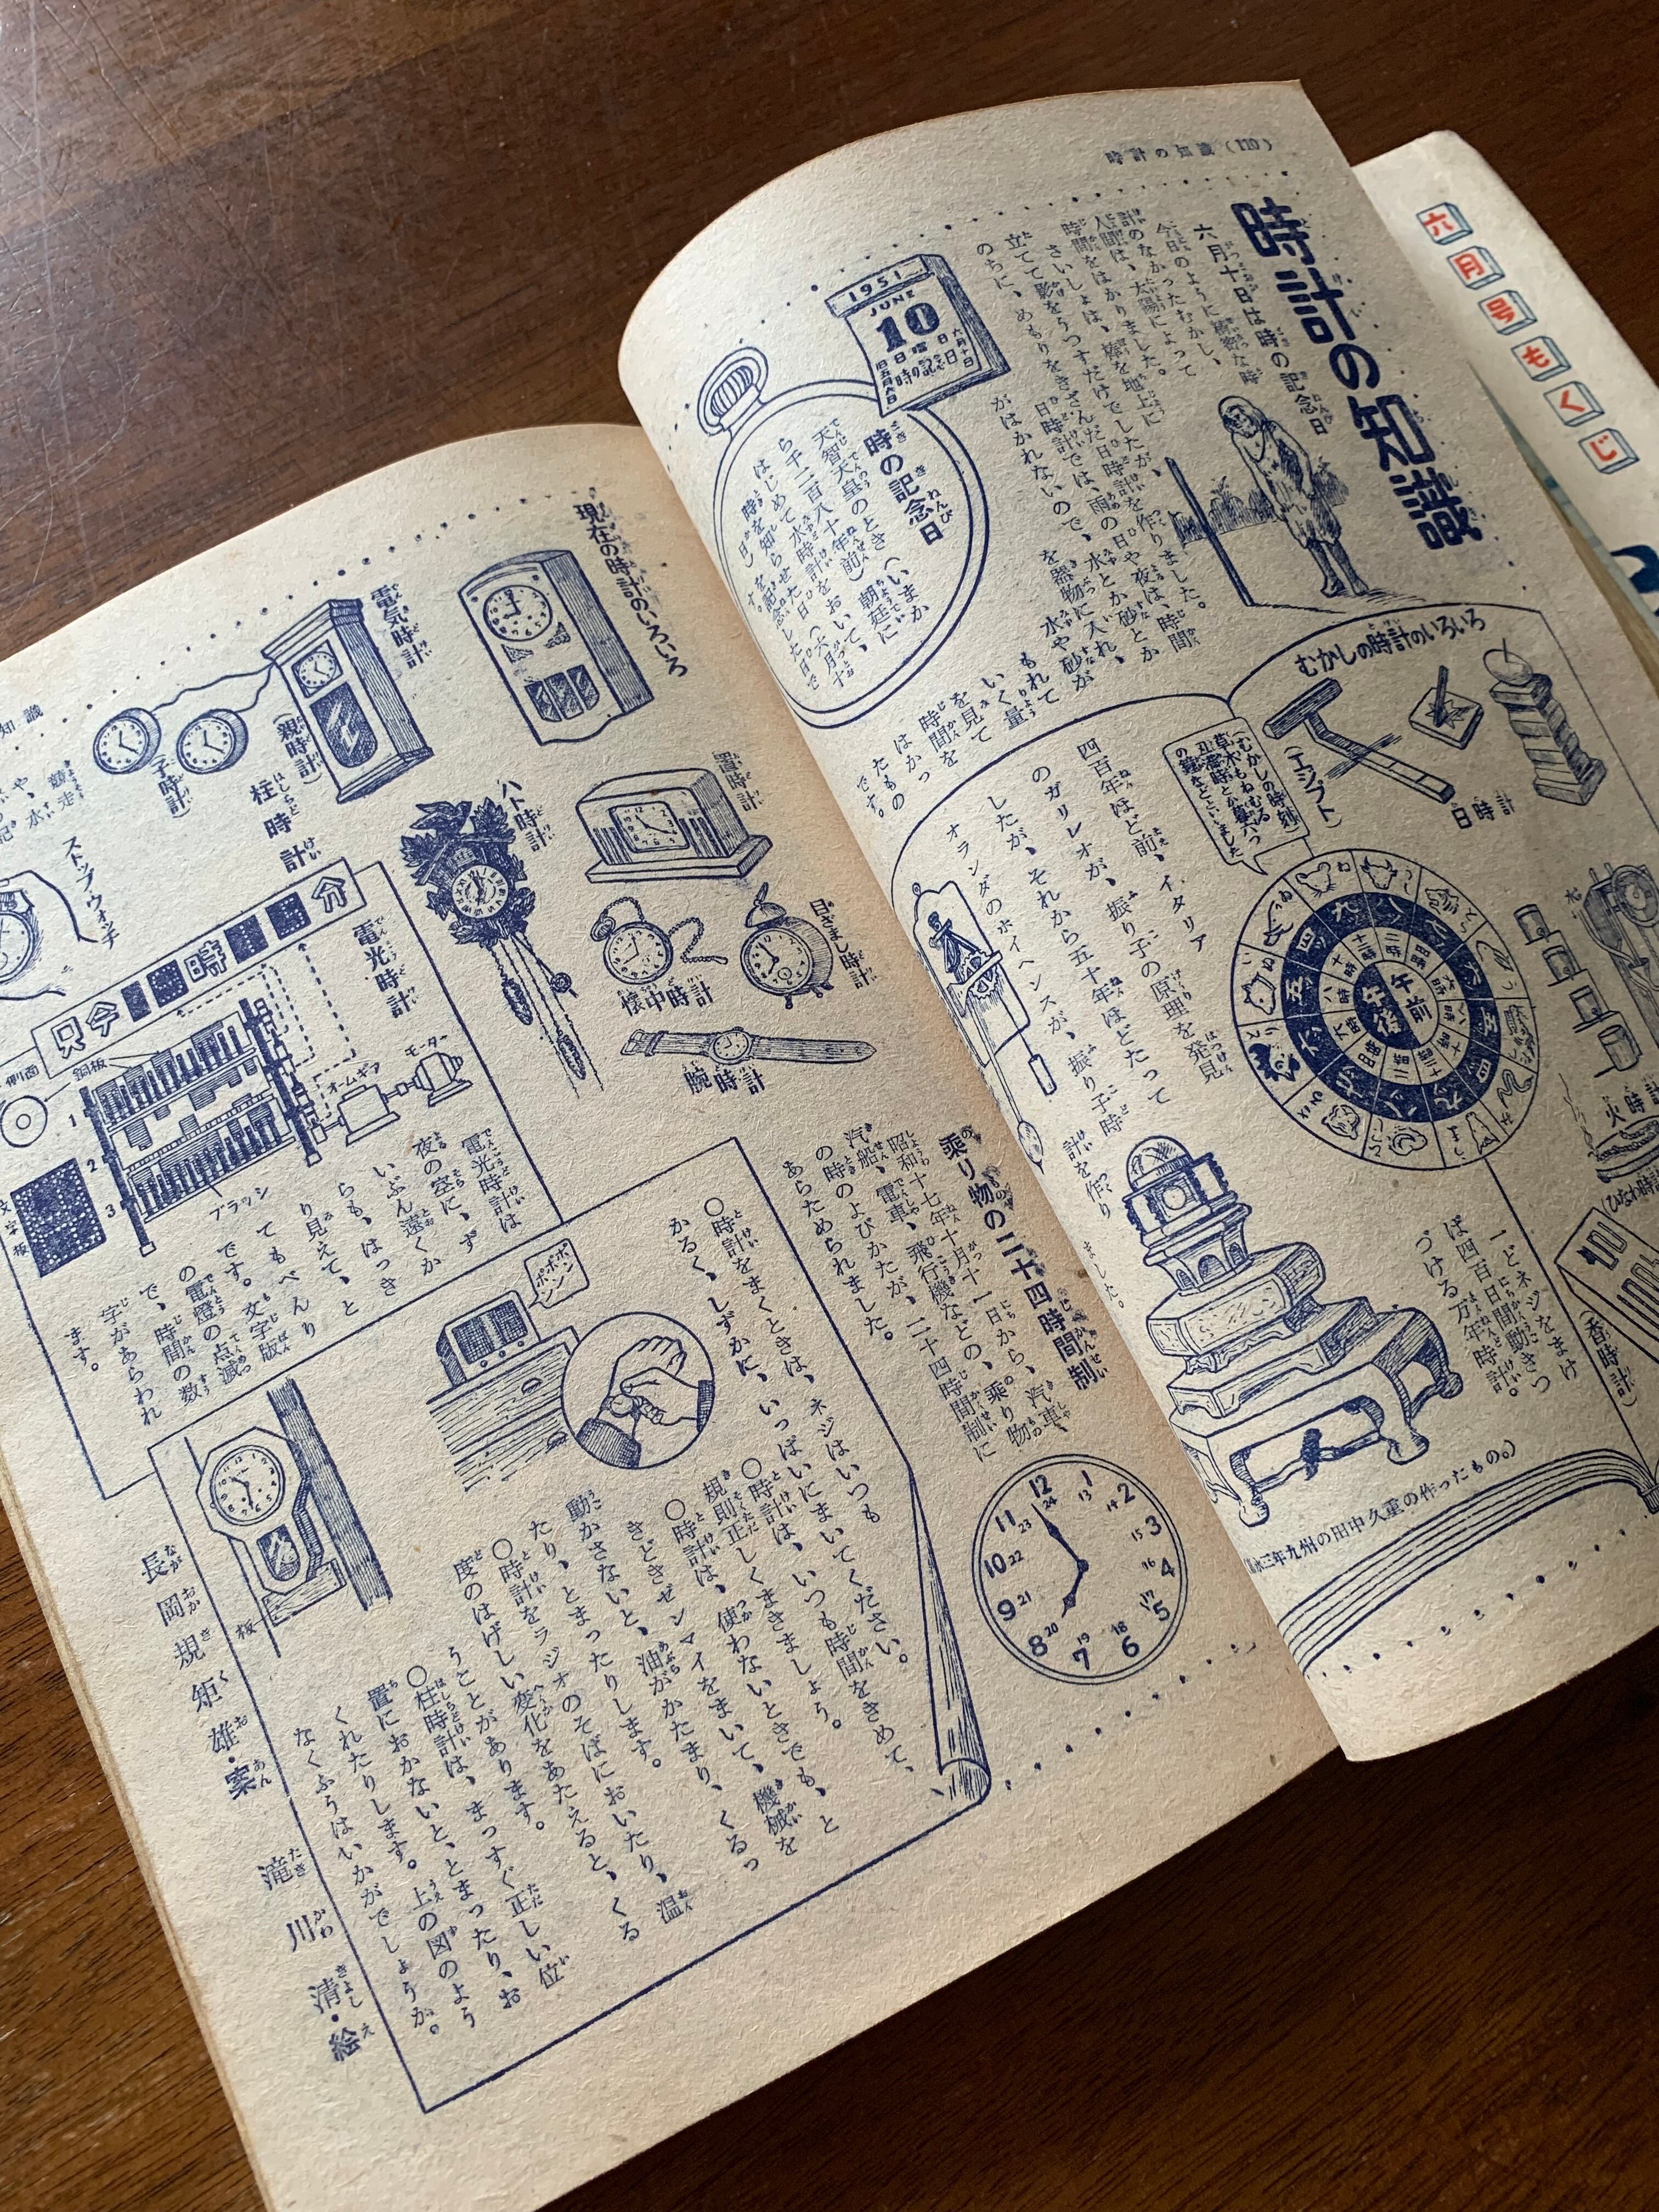 時計の知識(110)
時計の知識
六月十日は時の記念日
今日のように機密な時
計のなかったむかし、
人間は、太陽によって
時間をはかりました。
さいしょは、棒を地上に
立てて影をうつすだけでしたが、
のちに、めもりをきざんだ日時計を作りました。
日時計では、雨の日や夜は、時間
がはかれないので、水とか砂とか
を器物に入れ、
水や砂が
もれて
いく量
を見て
時間を
はかっ
たもの
です。
1951
JUNE
10
日曜日
六月十日
時の記念日
旧五月六日
時の記念日
天智天皇のとき(いまか
ら千二百八十年前)朝廷に
はじめて水時計をおいて、
時を知らせた日(六月十
日)を記念した日で
す。
むかしの時計のいろいろ
(エジプト)
日時計
(むかしの時刻)
草木もねむる
丑満時とか暮六つ
の鐘などといいました
午前
午後
水
火時計
(ひなわ時計)
(香時計)
四百年ほど前、イタリア
のガリレオが、振り子の原理を発見
したが、それから五十年ほどたって
オランダのホイヘンスが、振り子時
計を作り
ました。
一どネジをまけ
ば四百日間動きつ
づける万年時計。
永三年九州の田中久重の作ったもの。)
乗り物の二十四時間制
昭和十七年十月十一日から、汽車、
汽船、電車、飛行機などの、乗り物
の時のよびかたが、二十四時間制に
あらためられました。
12 1 2 3 4 5 6 7 8 9 10 11
24 13 14 15 16 17 18 19 20 21 22 23
現在の時計のいろいろ
電気時計
(親時計)
(子時計)
柱時計
置時計
ハト時計
目ざまし時計
懐中時計
腕時計
ストップウォッチ
電光時計
只今
時
分
側面
銅板
オームギア
モーター
ブラッシ
1
2
3
文字板
電光時計は
夜の空に、ず
いぶん遠くか
らも、はっき
り見えて、と
てもべんり
です。文字版
の電燈の点滅
で、時間の数
字があらわれ
ます。
ポポン
ポン
○時計をまくときは、ネジはいつも
かるく、しずかに、いっぱいにまいてください。
○時計は、いつも時間をきめて、
規則正しくまきましょう。
○時計は、使わないときでも、と
きどきゼンマイをまいて、機械を
動かさないと、油がかたまり、くるっ
たり、とまったりします。
○時計をラジオのそばにおいたり、温
度のはげしい変化をあたえると、くる
うことがあります。
○柱時計は、まっすぐ正しい位
置におかないと、とまったり、お
くれたりします。上の図のよう
なくふうはいかがでしょうか。
板
長岡規矩雄・案
滝川清・絵
六月号もくじ